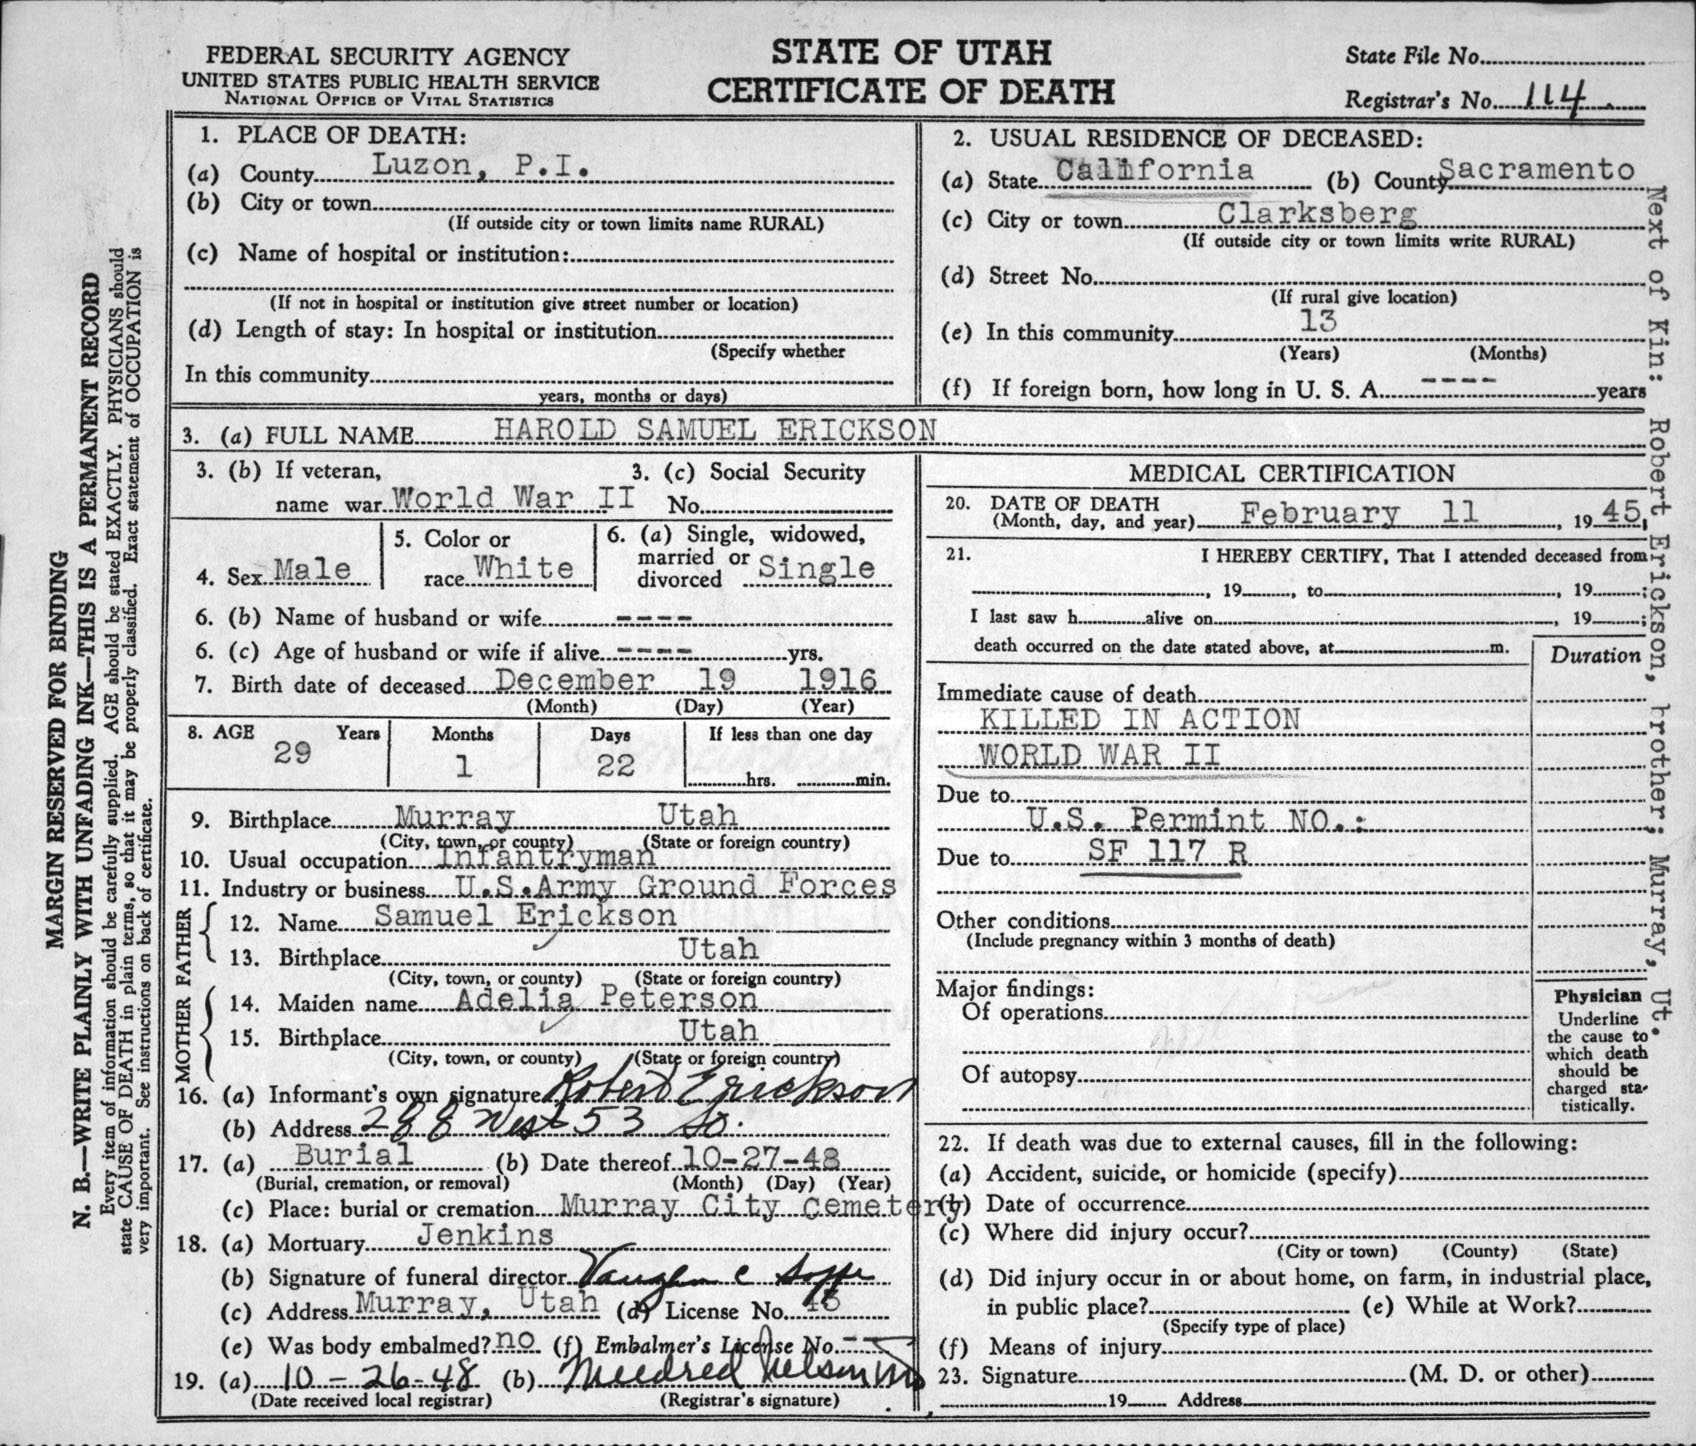 FEDERAL SECURITY AGENCY
UNITED STATES PUBLIC HEALTH SERVICE
NATIONAL OFFICE OF VITAL STATISTICS
STATE OF UTAH
CERTIFICATE OF DEATH
State File No.
Registrar's No. 114
MARGIN RESERVED FOR BINDING
N. B.—WRITE PLAINLY WITH UNFADING INK—THIS IS A PERMANENT RECORD
Every item of information should be carefully supplied. AGE should be stated EXACTLY. PHYSICIANS should
state CAUSE OF DEATH in plain terms, so that it may be properly classified. Exact statement of OCCUPATION is
very important. See instructions on back of certificate.
1. PLACE OF DEATH:
(a) County Luzon, P.I.
(b) City or town
(If outside city or town limits name RURAL)
(c) Name of hospital or institution:
(If not in hospital or institution give street number or location)
(d) Length of stay: In hospital or institution
(Specify whether
In this community
years, months or days)
2. USUAL RESIDENCE OF DECEASED:
(a) State California (b) County Sacramento
(c) City or town Clarksberg
(If outside city or town limits write RURAL)
(d) Street No.
(If rural give location)
(e) In this community 13
(Years) (Months)
(f) If foreign born, how long in U. S. A. ---- years
3. (a) FULL NAME HAROLD SAMUEL ERICKSON
3. (b) If veteran, 3. (c) Social Security
name war World War II No.
4. Sex Male
5. Color or
race White
6. (a) Single, widowed,
married or
divorced Single
6. (b) Name of husband or wife ----
6. (c) Age of husband or wife if alive ---- yrs.
7. Birth date of deceased December 19 1916
(Month) (Day) (Year)
8. AGE Years Months Days If less than one day
29 1 22 hrs. min.
9. Birthplace Murray Utah
(City, town, or county) (State or foreign country)
10. Usual occupation Infantryman
11. Industry or business U.S.Army Ground Forces
FATHER
12. Name Samuel Erickson
13. Birthplace Utah
(City, town, or county) (State or foreign country)
MOTHER
14. Maiden name Adelia Peterson
15. Birthplace Utah
(City, town, or county) (State or foreign country)
16. (a) Informant's own signature Robert Erickson
(b) Address 288 West 53 So.
17. (a) Burial (b) Date thereof 10-27-48
(Burial, cremation, or removal) (Month) (Day) (Year)
(c) Place: burial or cremation Murray City Cemetery
18. (a) Mortuary Jenkins
(b) Signature of funeral director Vaughn C
(c) Address Murray, Utah (d) License No.
(e) Was body embalmed? no (f) Embalmer's License No. --
19. (a) 10-26-48 (b) Mildred Nelson
(Date received local registrar) (Registrar's signature)
MEDICAL CERTIFICATION
20. DATE OF DEATH
(Month, day, and year) February 11, 1945
21. I HEREBY CERTIFY, That I attended deceased from
, 19 , to , 19 ;
I last saw h alive on , 19 ;
death occurred on the date stated above, at m.
Duration
Immediate cause of death
KILLED IN ACTION
WORLD WAR II
Due to
U.S. Permint NO.:
Due to SF 117 R
Other conditions
(Include pregnancy within 3 months of death)
Major findings:
Of operations
Of autopsy
Physician
Underline
the cause to
which death
should be
charged sta-
tistically.
22. If death was due to external causes, fill in the following:
(a) Accident, suicide, or homicide (specify)
(b) Date of occurrence
(c) Where did injury occur?
(City or town) (County) (State)
(d) Did injury occur in or about home, on farm, in industrial place,
in public place? (e) While at Work?
(Specify type of place)
(f) Means of injury
23. Signature (M. D. or other)
19 Address
Next of Kin: Robert Erickson, brother; Murray, Ut.